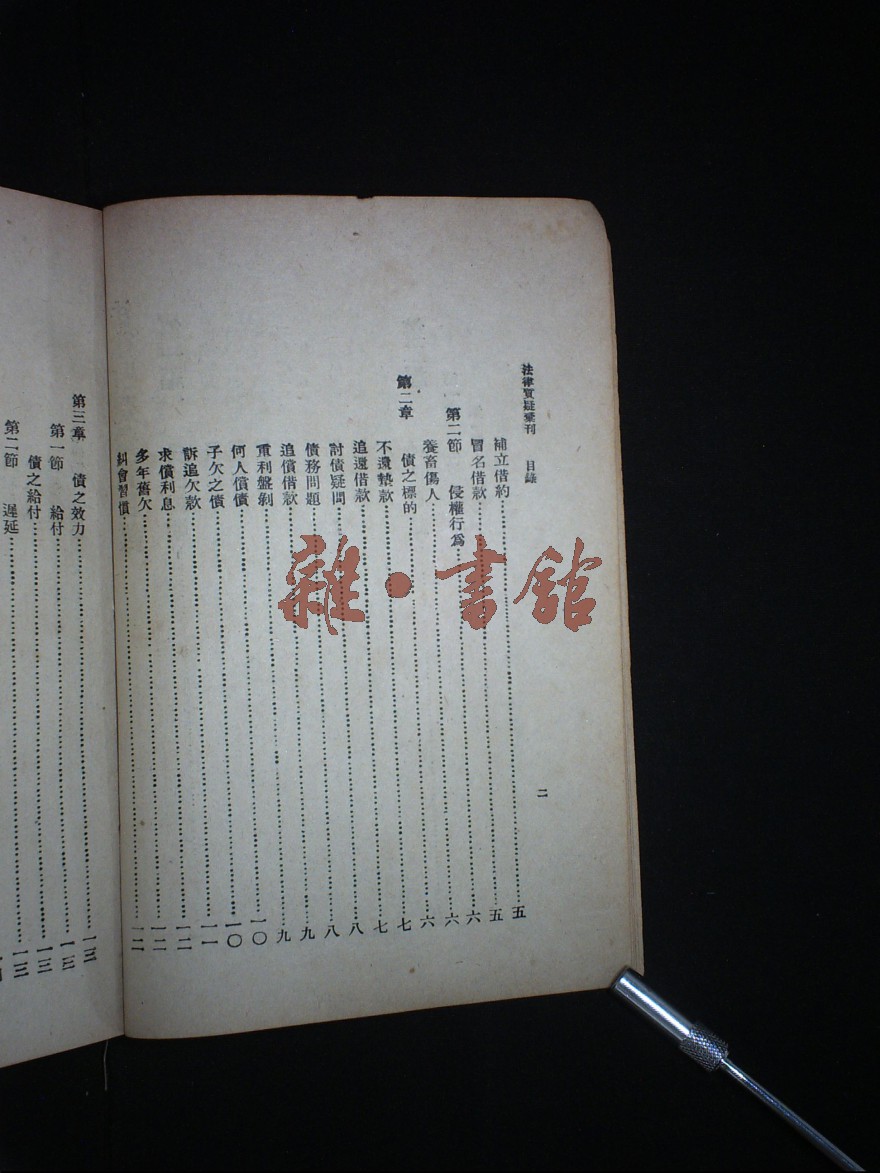 法律質疑彙刊 目錄 二
補立借約…………五
冒名借款…………五
第二節 侵權行爲…………六
養畜傷人…………六
第二章 債之標的…………六
不還墊款…………七
追還借款…………七
討債疑問…………八
債務問題…………八
追償借款…………九
重利盤剝…………九
何人償債…………一〇
子欠之債…………一〇
訴追欠款…………一一
求償利息…………一二
多年舊欠…………一二
糾會習慣…………一二
第三章 債之效力…………一三
第一節 給付…………一三
債之給付…………一三
第二節 遲延…………一三
雜·書館